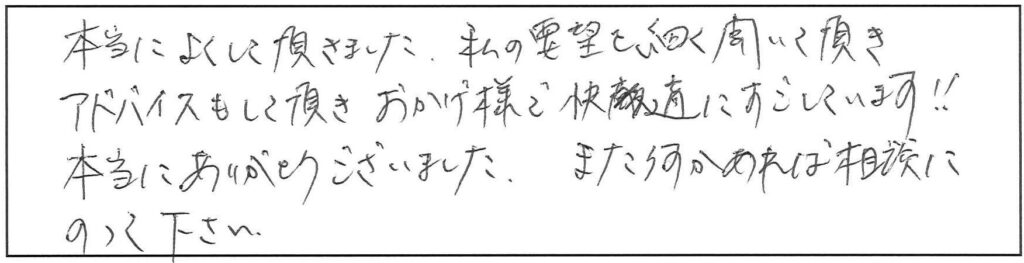 本当によくして頂きました。私の要望を細く聞いて頂き
アドバイスもして頂き おかげ様で 快適にすごしています!!
本当にありがとうございました。 また何かあれば相談に
のって下さい。